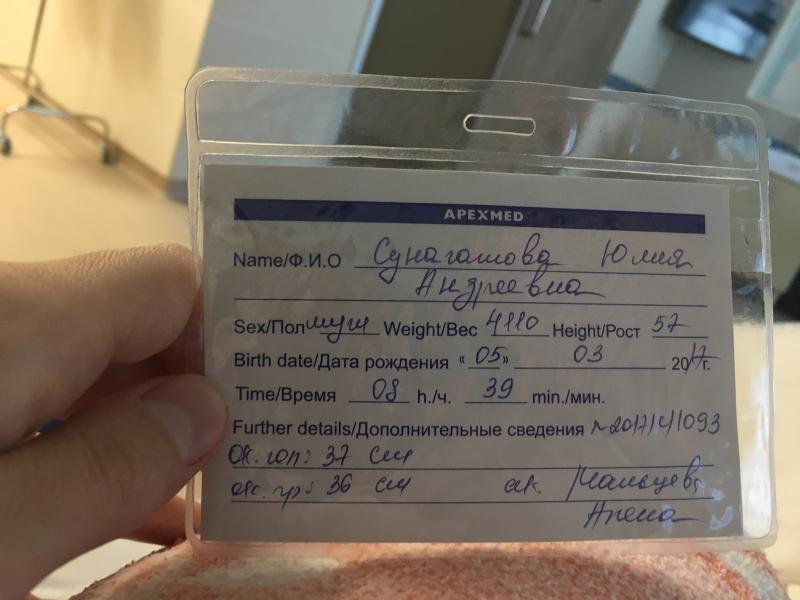 APEXMED
Name/Ф.И.О Сунагатова Юлия
Андреевна
Sex/Пол муж Weight/Вес 4110 Height/Рост 57
Birth date/Дата рождения «05» 03 2017г.
Time/Время 08 h./ч. 39 min./мин.
Further details/Дополнительные сведения №2017/4/1093
Ок. гол: 37 см
ок. гр: 36 см ак.